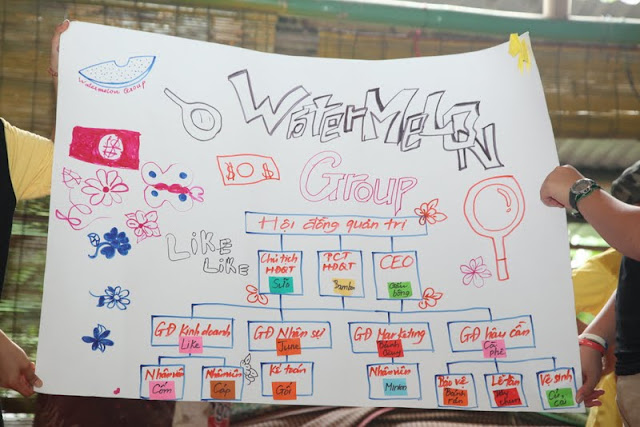 Watermelon Group
WaterMeLON
Group
LiKE
LiKE
Hội đồng quản trị
Chủ tịch
HĐQT
Sứa
PCT
HĐQT
Bambi
CEO
GĐ Kinh doanh
Like
GĐ Nhân sự
June
GĐ Marketing
GĐ hậu cần
Cà phê
Nhân viên
Cốm
Nhân viên
Cốp
Kế toán
Nhân viên
Minion
Bảo vệ
Lễ tân
Vệ sinh